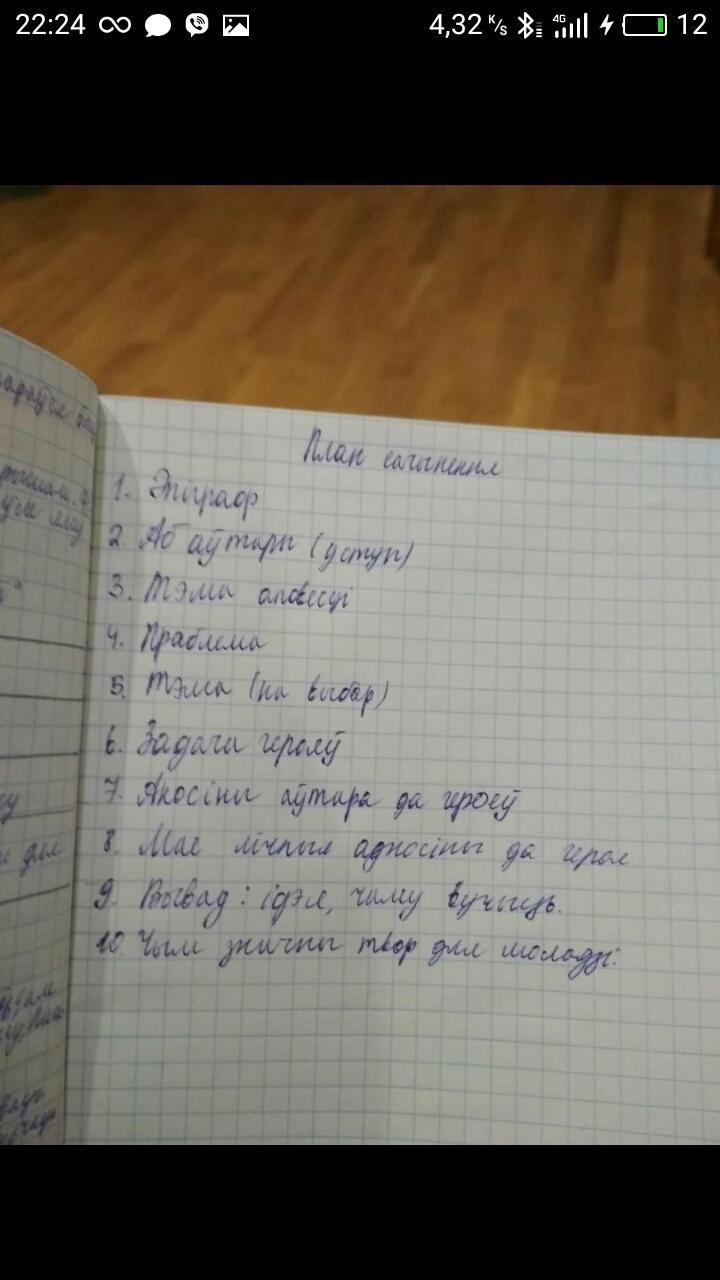 22:24
4,32 K/s 4G 12
План сачынення
1. Эпіграф
2. Аб аўтары (уступ)
3. Тэма аповесці
4. Праблема
5. Тэма (на выбар)
6. Задачи герояў
7. Аносіны аўтара да герояў
8. Мае лічныя адносіны да героя
9. Вывад: ідэя, чаму вучыць.
10. Чым значны твор для моладзі.